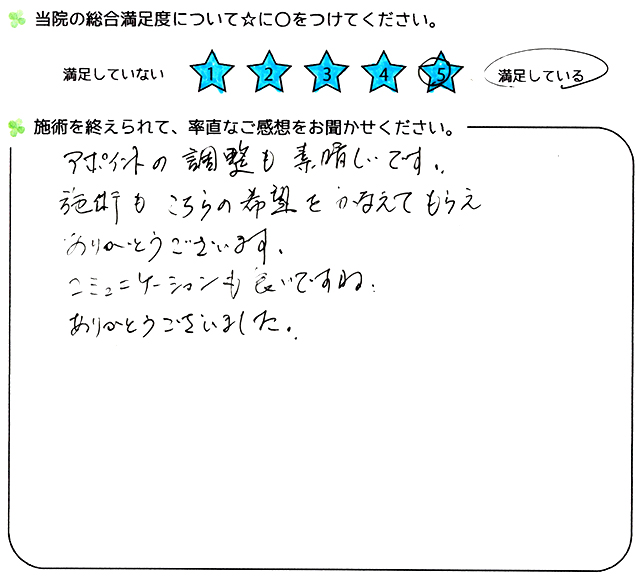 当院の総合満足度について☆に○をつけてください。
満足していない 1 2 3 4 5 満足している
施術を終えられて、率直なご感想をお聞かせください。
アポイントの調整も素晴しいです。
施術もこちらの希望をかなえてもらえ
ありがとうございます。
コミュニケーションも良いですね.
ありがとうございました。